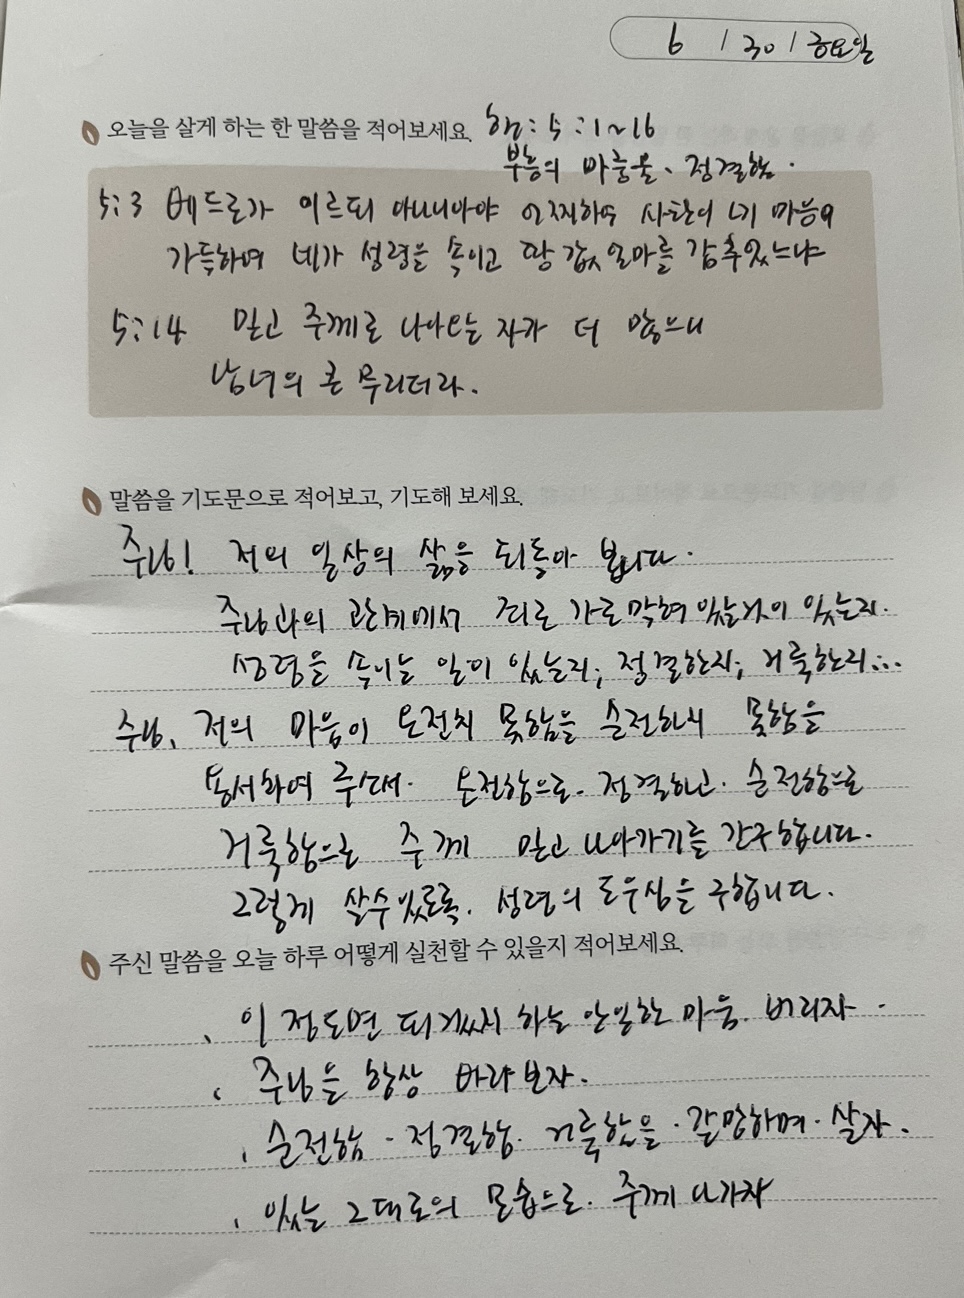 6 / 30 / 금요일
오늘을 살게 하는 한 말씀을 적어보세요. 행: 5:1~16
부흥의 마중물、정결함.
5:3 베드로가 이르되 아나니아야 어찌하여 사탄이 네 마음에
가득하여 네가 성령을 속이고 땅 값 얼마를 감추었느냐
5:14 믿고 주께로 나아오는 자가 더 많으니
남녀의 큰 무리더라.
말씀을 기도문으로 적어보고, 기도해 보세요.
주님! 저의 일상의 삶을 되돌아 봅니다.
주님과의 관계에서 죄로 가로막혀 있는것이 있는지.
성령을 속이는 일이 있는지; 정결한지; 거룩한지...
주님、저의 마음이 온전치 못함을 순전하지 못함을
용서하여 주소서. 온전함으로. 정결하고. 순전함으로
거룩함으로 주께 믿고 나아가기를 간구합니다.
그렇게 살수있도록. 성령의 도우심을 구합니다.
주신 말씀을 오늘 하루 어떻게 실천할 수 있을지 적어보세요.
、이 정도면 되겠지 하는 안일한 마음. 버리자.
、주님을 항상 바라보자.
、순전함. 정결함. 거룩함을. 갈망하며. 살자.
、있는 그대로의 모습으로. 주께 나가자